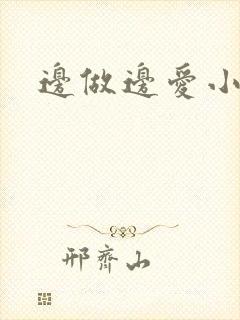 邊做邊愛小
邢齊山